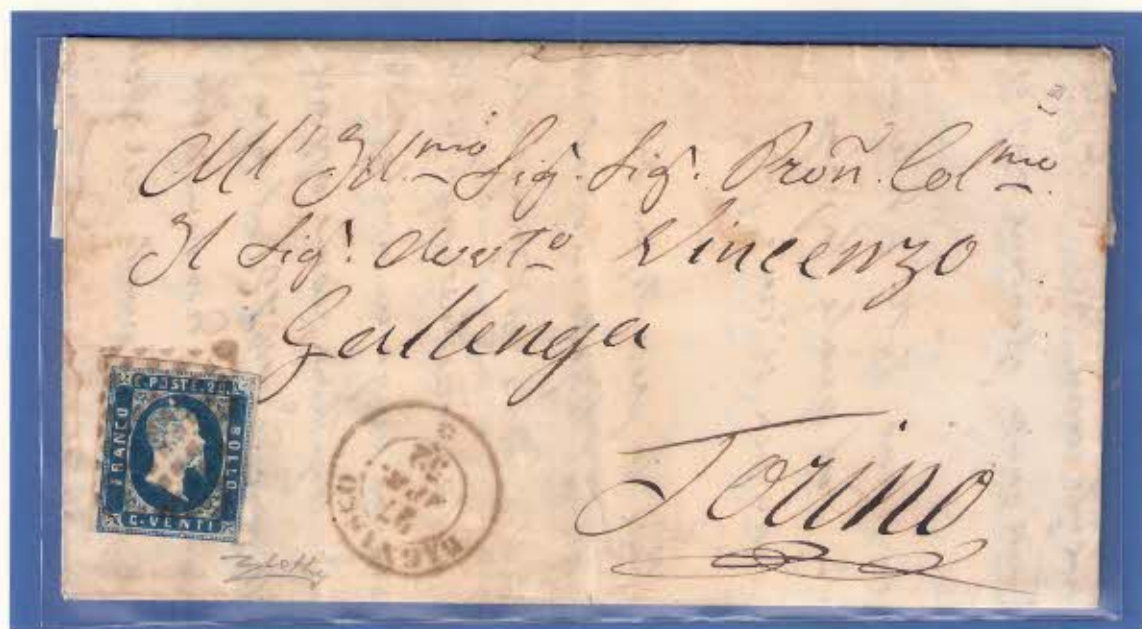 All' Ill.mo Sig.r Sig.r Pron. Col.mo
Il Sig.r Avvto Vincenzo
Gallenga
Torino
C. POSTE. 20.
FRANCO
BOLLO
C. VENTI
BAGNASCO
APR
52